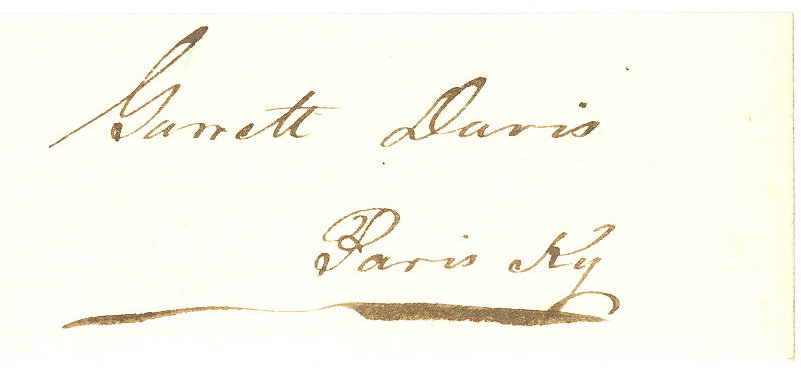 Garrett Davis
Paris Ky